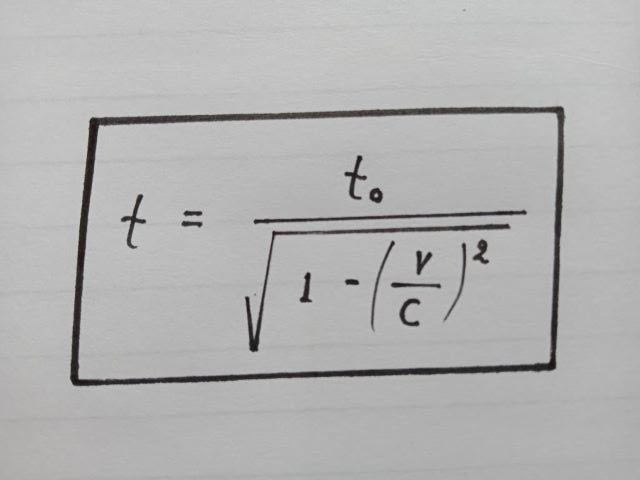 t = t₀ / √(1 - (v/c)²)